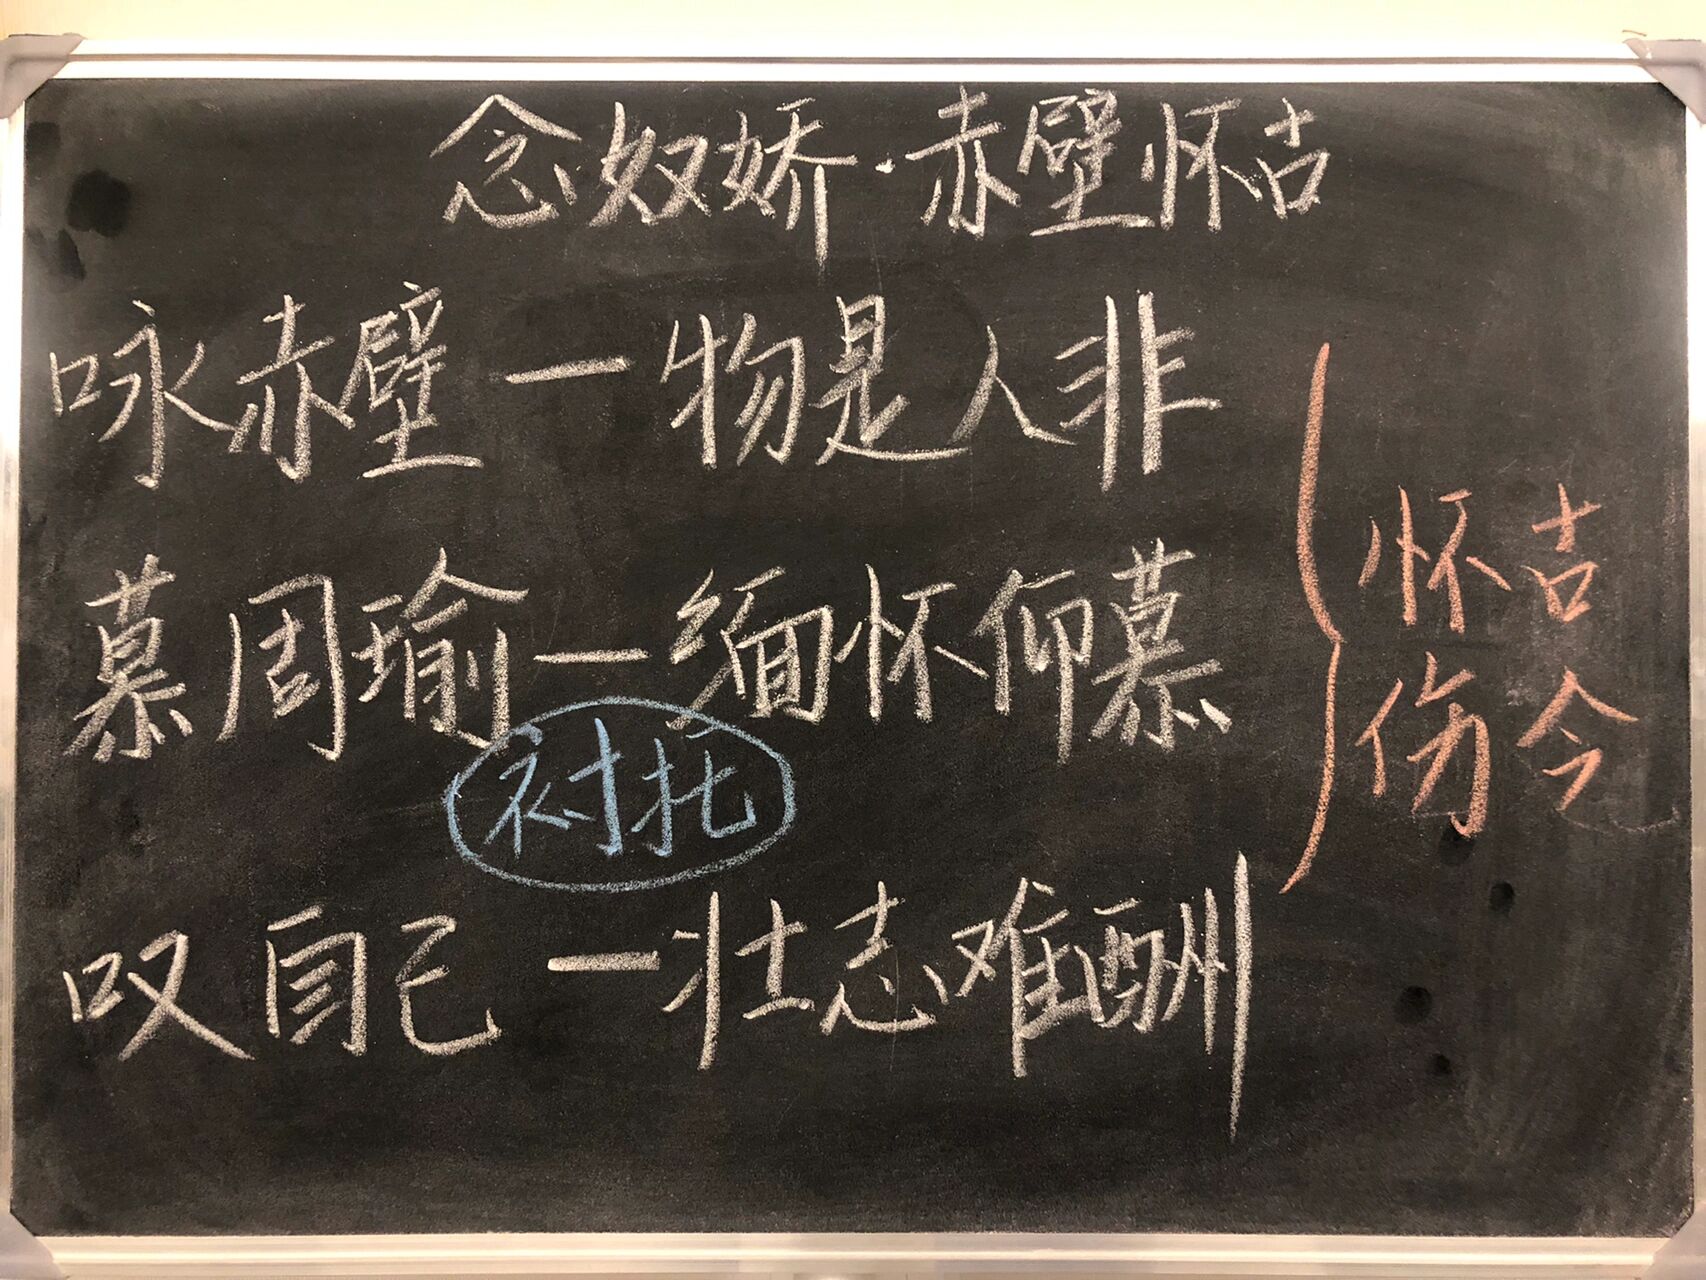 念奴娇·赤壁怀古
咏赤壁—物是人非
慕周瑜—缅怀仰慕
衬托
叹自己—壮志难酬
怀古
伤今